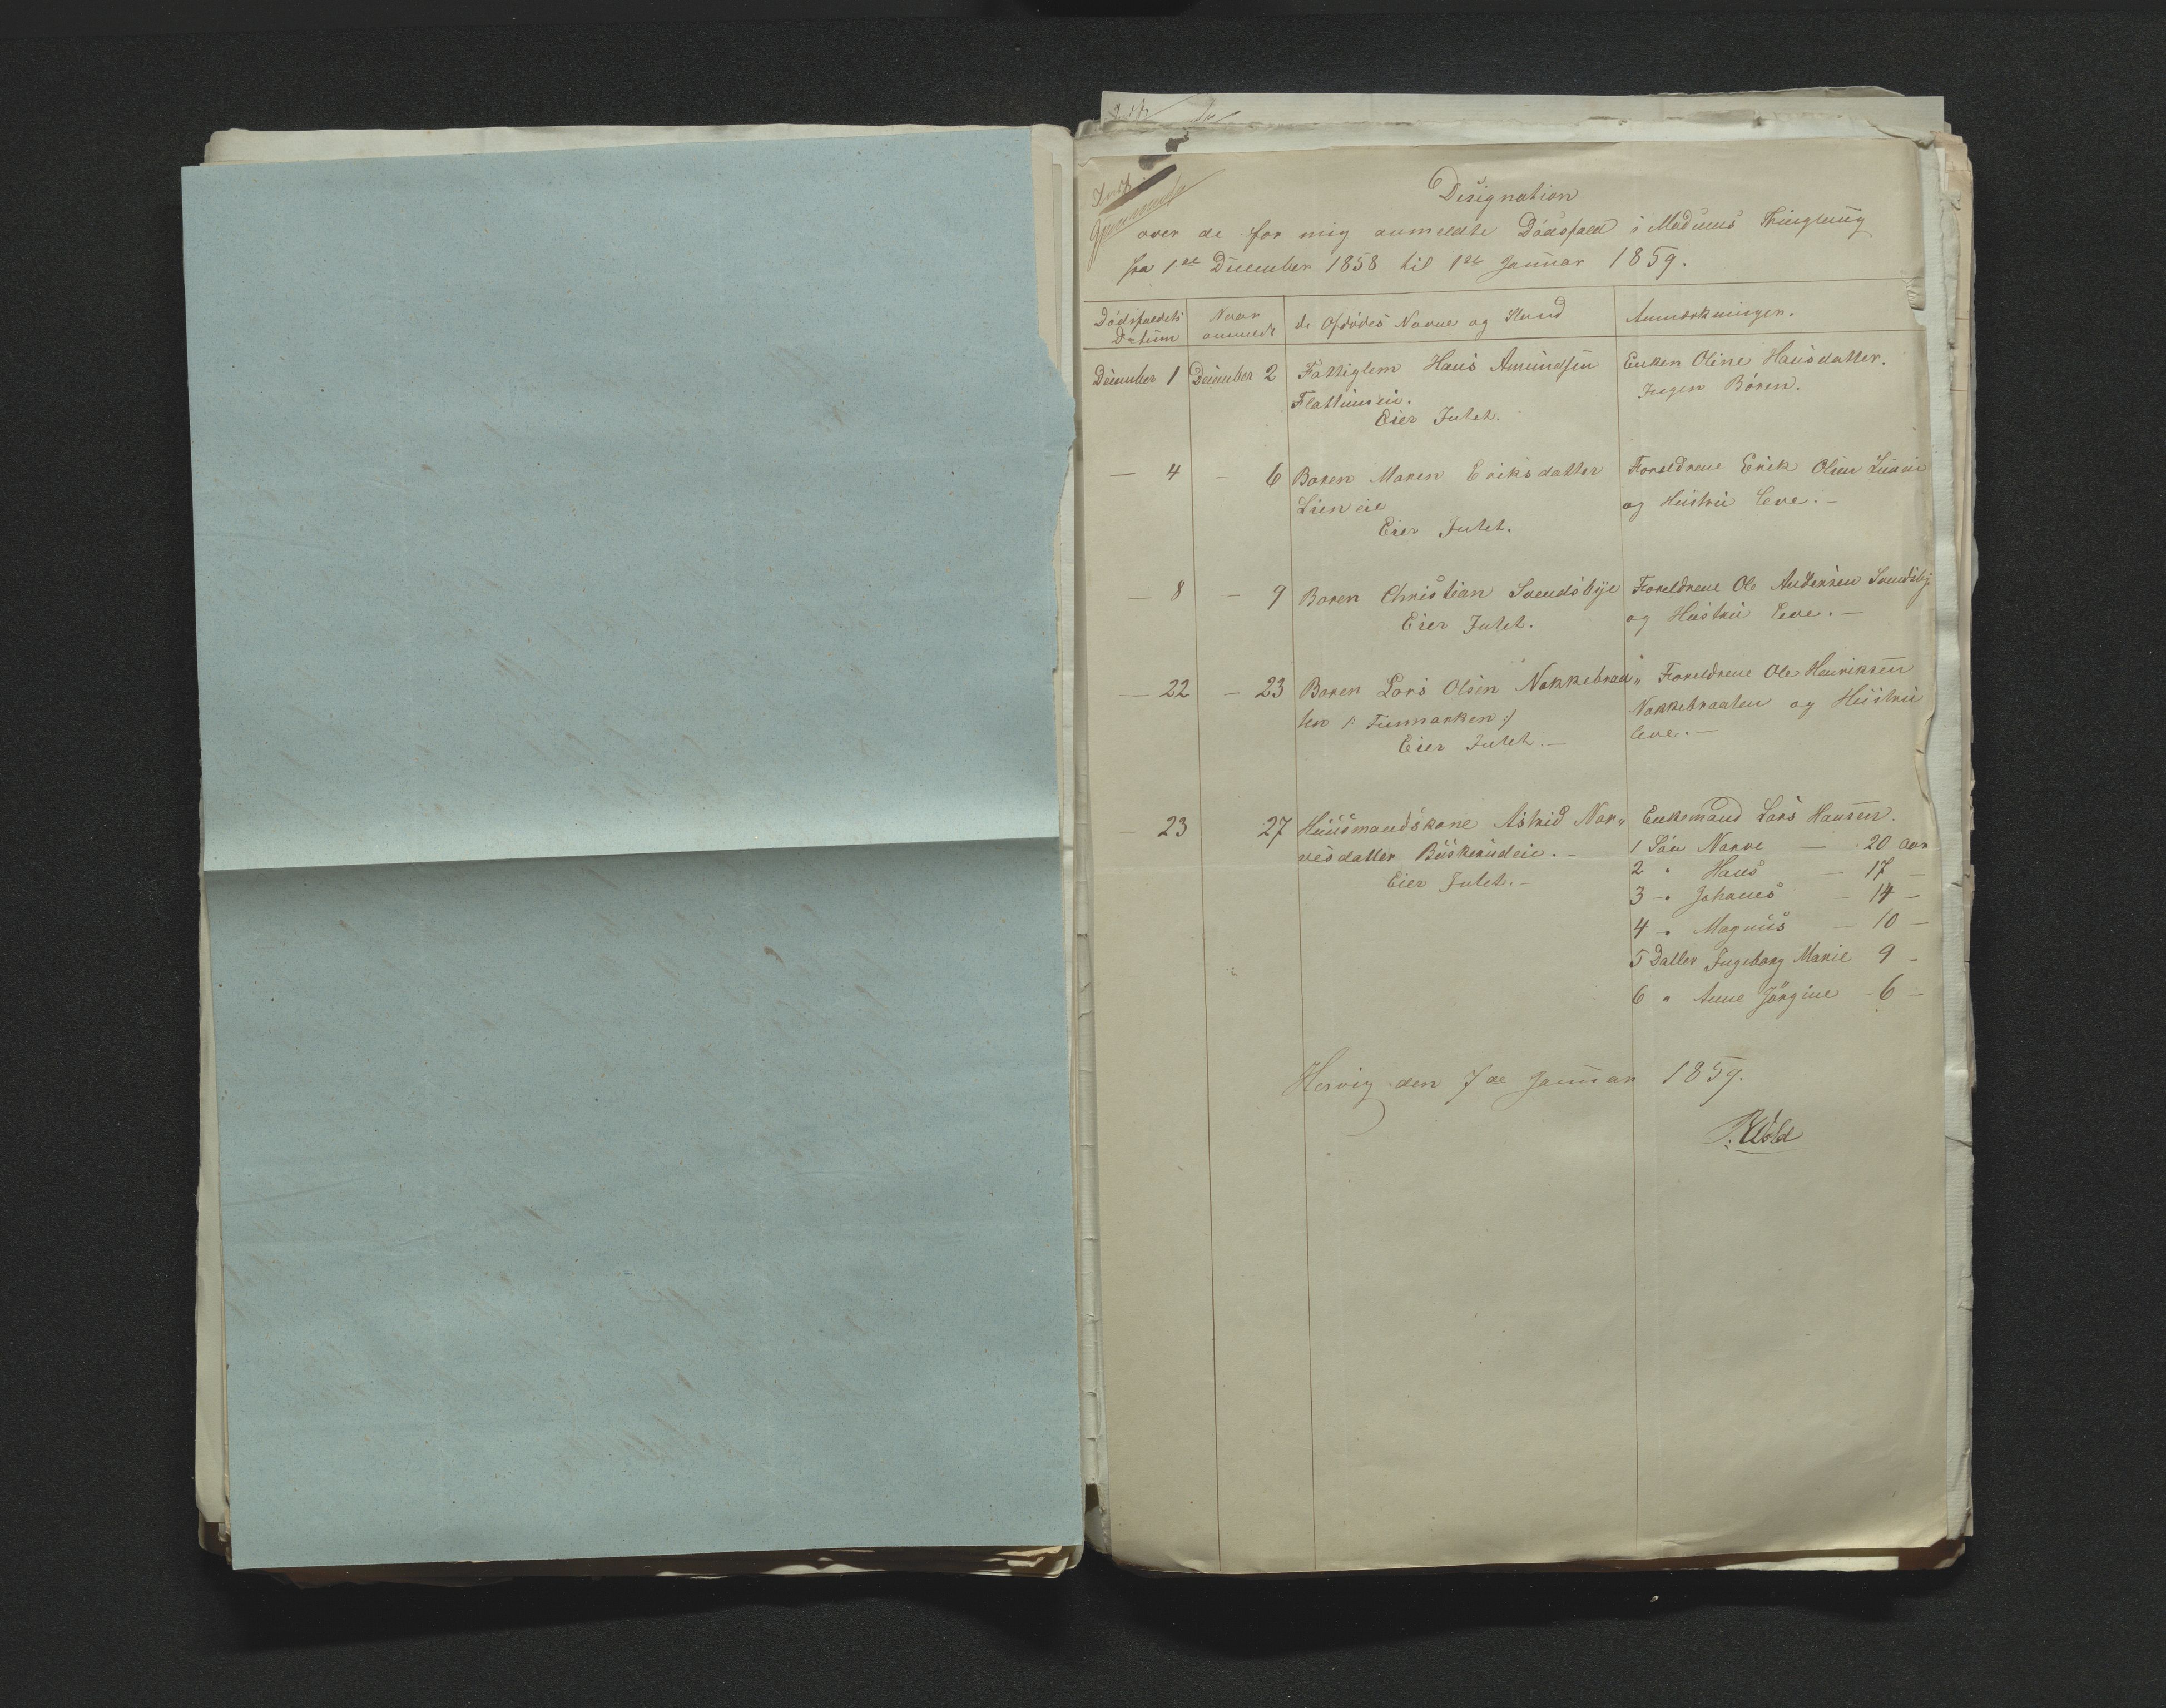 Designation
over de for mig anmeldte Dödsfald i Modums Thinglaug
fra 1ste December 1858 til 1ste Januar 1859.
Dödsfaldets Datum
Naar anmeldt
de Afdödes Navne og Stand
Anmærkninger.
December 1 December 2 Fattiglem Hans Amundsen Enken Oline Hansdatter.
Flattumeie. Ingen Börn.
Eier Intet.
— 4 — 6 Barn Maren Eriksdatter Foreldrene Erik Olsen Lieneie
Lieneie og Hustru leve. —
Eier Intet.
— 8 — 9 Barn Christian Svendsbye Foreldrene Ole Andersen Svendsby
Eier Intet. og Hustru leve. —
— 22 — 23 Barn Lars Olsen Nakkebraa„ Foreldrene Ole Henriksen
ten /: Finmarken :/ Nakkebraaten og Hustru
Eier Intet. — leve. —
— 23 27 Huusmandskone Astrid Nar„ Enkemand Lars Hansen.
vesdatter Buskerudeie. — 1 Sön Narve — 20 Aar
Eier Intet. — 2 " Hans — 17 —
3 — " Johanes — 14 —
4 " Magnus — 10 —
5 Datter Ingeborg Marie 9 —
6 " Anne Jörgine — 6 —
Hervig den 7de Januar 1859.